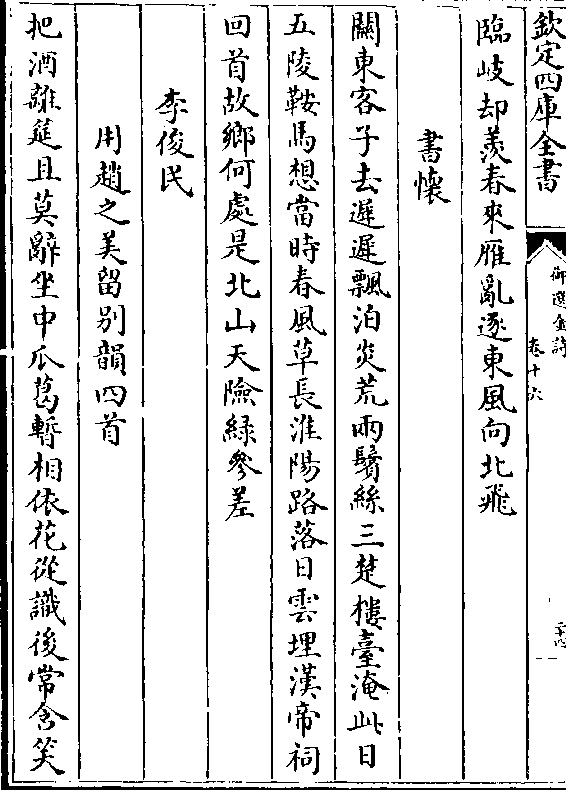 欽定四庫全書
御選金詩
卷十六
臨岐却羨春來雁亂逐東風向北飛
書懷
關東客子去遲遲飄泊炎荒兩鬢絲三楚樓臺淹此日
五陵鞍馬想當時春風草長淮陽路落日雲埋漢帝祠
回首故鄉何處是北山天險綠參差
李俊民
用趙之美留别韻四首
把酒離筵且莫辭坐中瓜葛暫相依花從識後常含笑